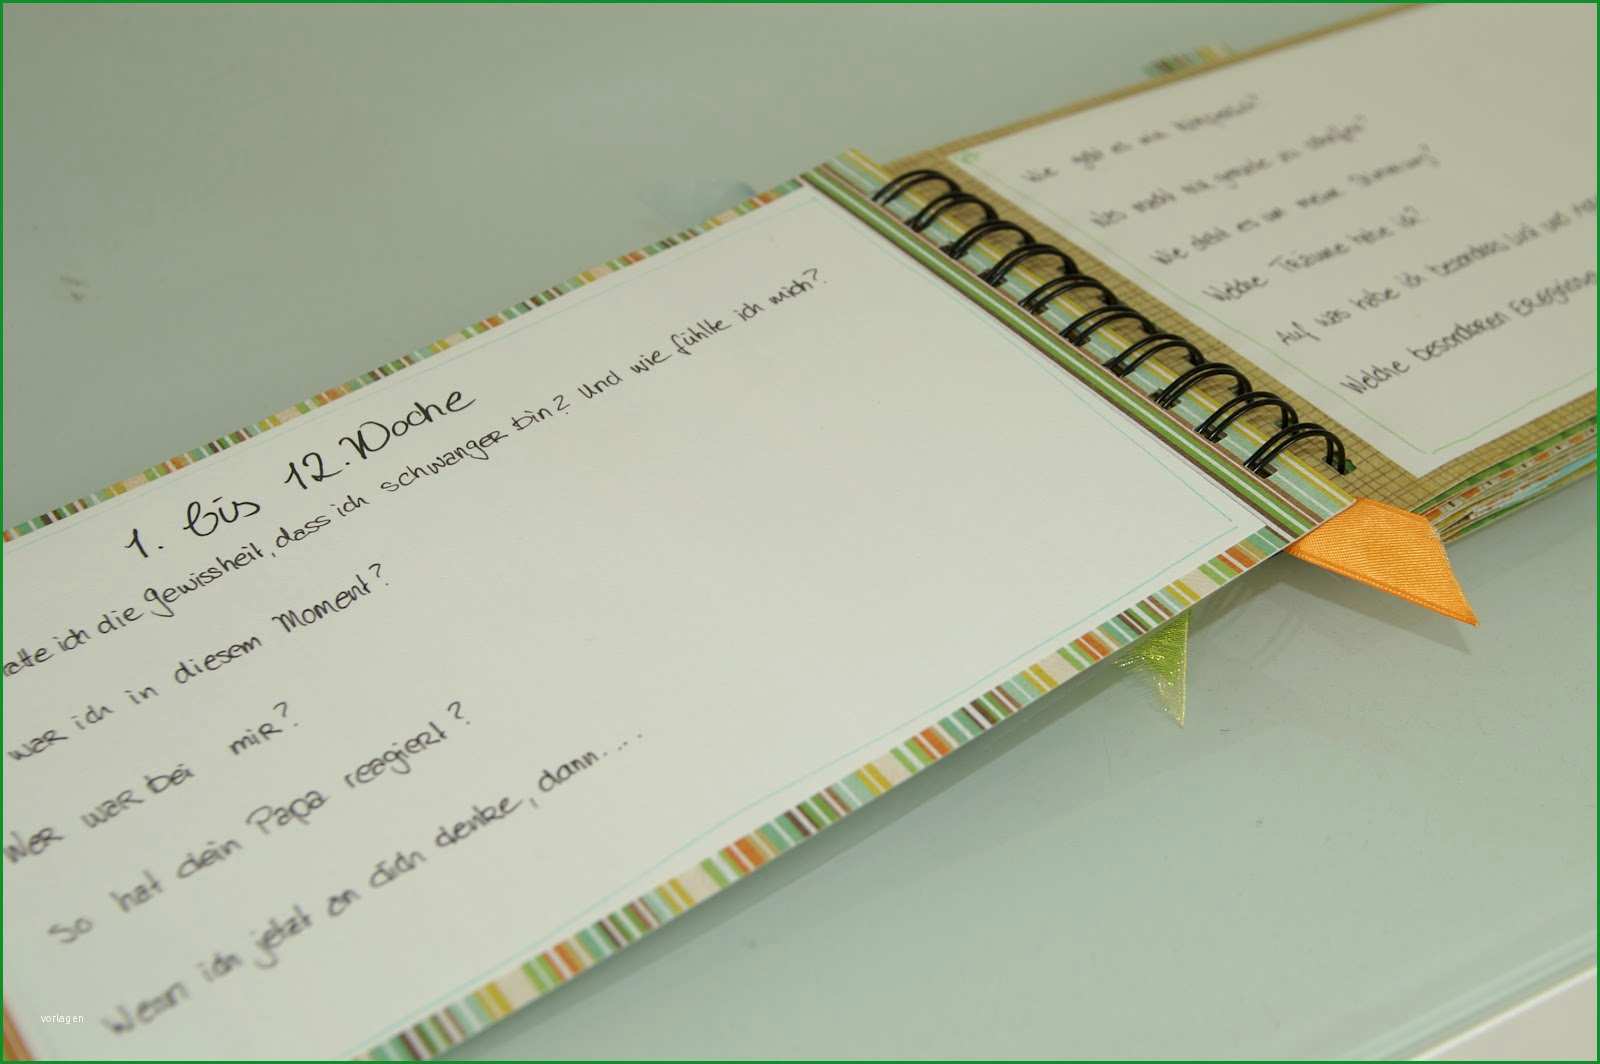 1. bis 12. Woche
hatte ich die gewissheit, dass ich schwanger bin? Und wie fühlte ich mich?
war ich in diesem Moment?
Wer war bei mir?
So hat dein Papa reagiert?
Wenn ich jetzt an dich denke, dann....
Wie geht es mir körperlich?
Was macht mir gerade zu schaffen?
Wie steht es um meine Stimmung?
Welche Träume habe ich?
Auf was habe ich besonders Lust und
Welche besonderen Ereignisse
vorlagen